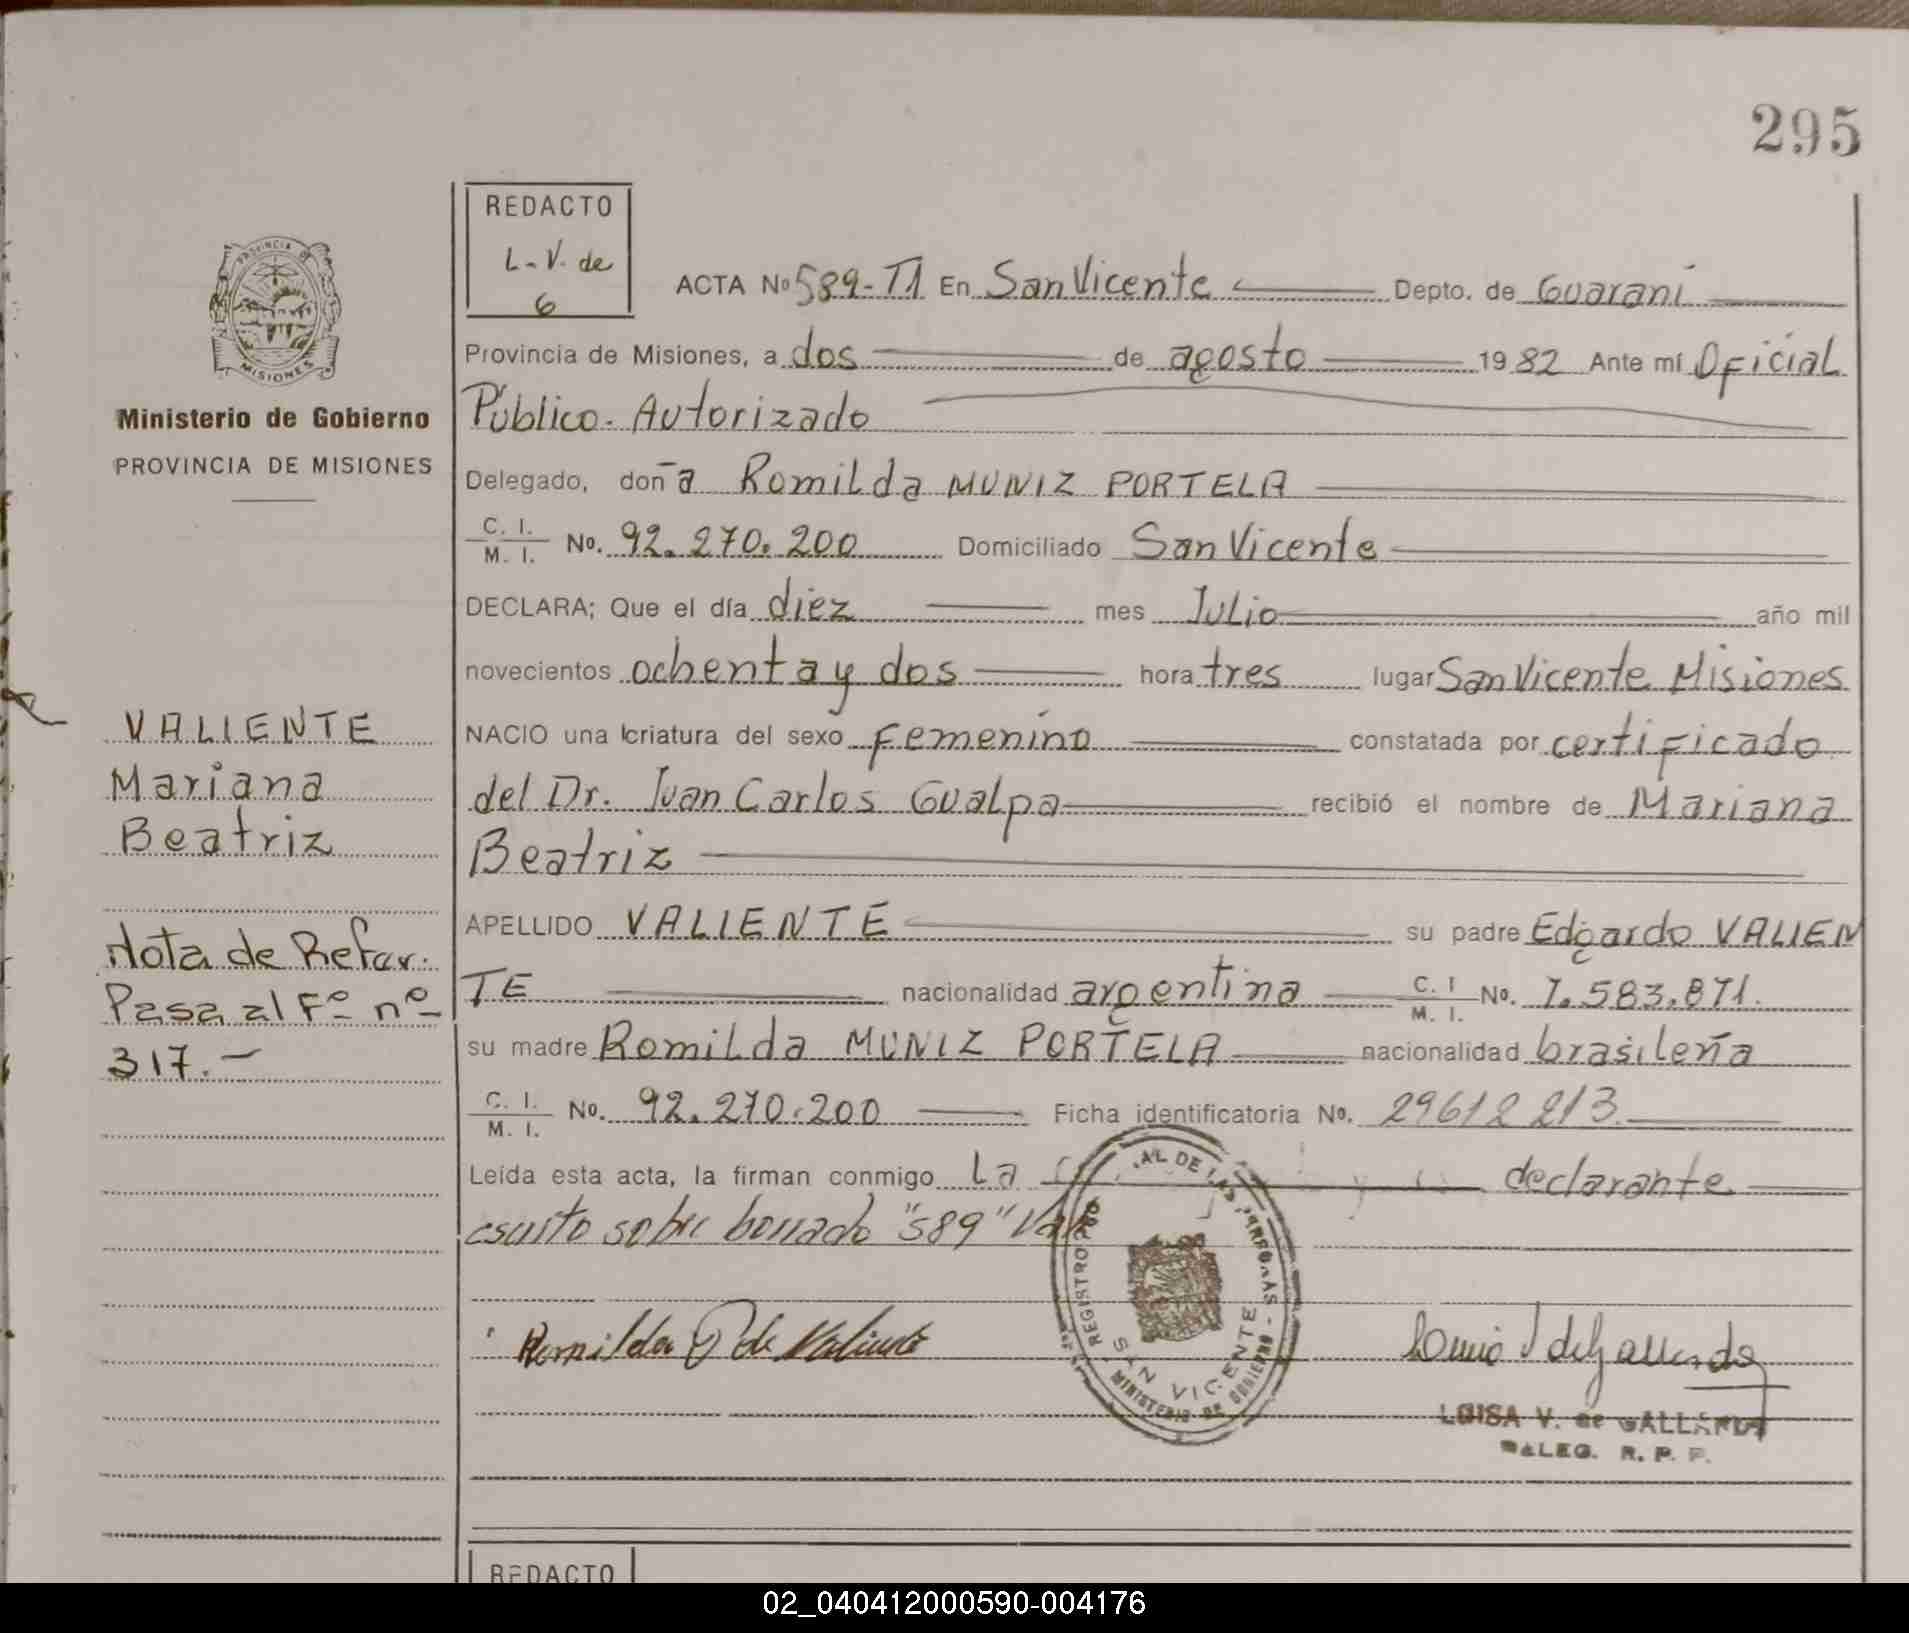 295
REDACTO
L. V. de
G
PROVINCIA DE
MISIONES
Ministerio de Gobierno
PROVINCIA DE MISIONES
ACTA No 589-T1 En San Vicente Depto. de Guaraní
Provincia de Misiones, a dos de agosto 1982 Ante mí Oficial
Público. Autorizado
Delegado, doña Romilda MUNIZ PORTELA
C. I. / M. I. No. 92.270.200 Domiciliado San Vicente
DECLARA; Que el día diez mes Julio año mil
novecientos ochenta y dos hora tres lugar San Vicente Misiones
NACIO una criatura del sexo Femenino constatada por certificado
del Dr. Juan Carlos Gualpa recibió el nombre de Mariana
Beatriz
APELLIDO VALIENTE su padre Edgardo VALIEN
TE nacionalidad argentina C. I / M. I. No. 7.583.871.
su madre Romilda MUNIZ PORTELA nacionalidad brasileña
C. I. / M. I. No. 92.270.200 Ficha identificatoria No. 29612213
Leída esta acta, la firman conmigo La declarante
escrito sobre borrado "589" Vale
VALIENTE
Mariana
Beatriz
Nota de Refer.
Pasa al Fº nº
317.-
Romilda P de Valiente
REGISTRO DE LAS PERSONAS - SAN VICENTE
MINISTERIO DE GOBIERNO
LUISA V. de GALLARDO
DELEG. R. P. P.
REDACTO
02_040412000590-004176